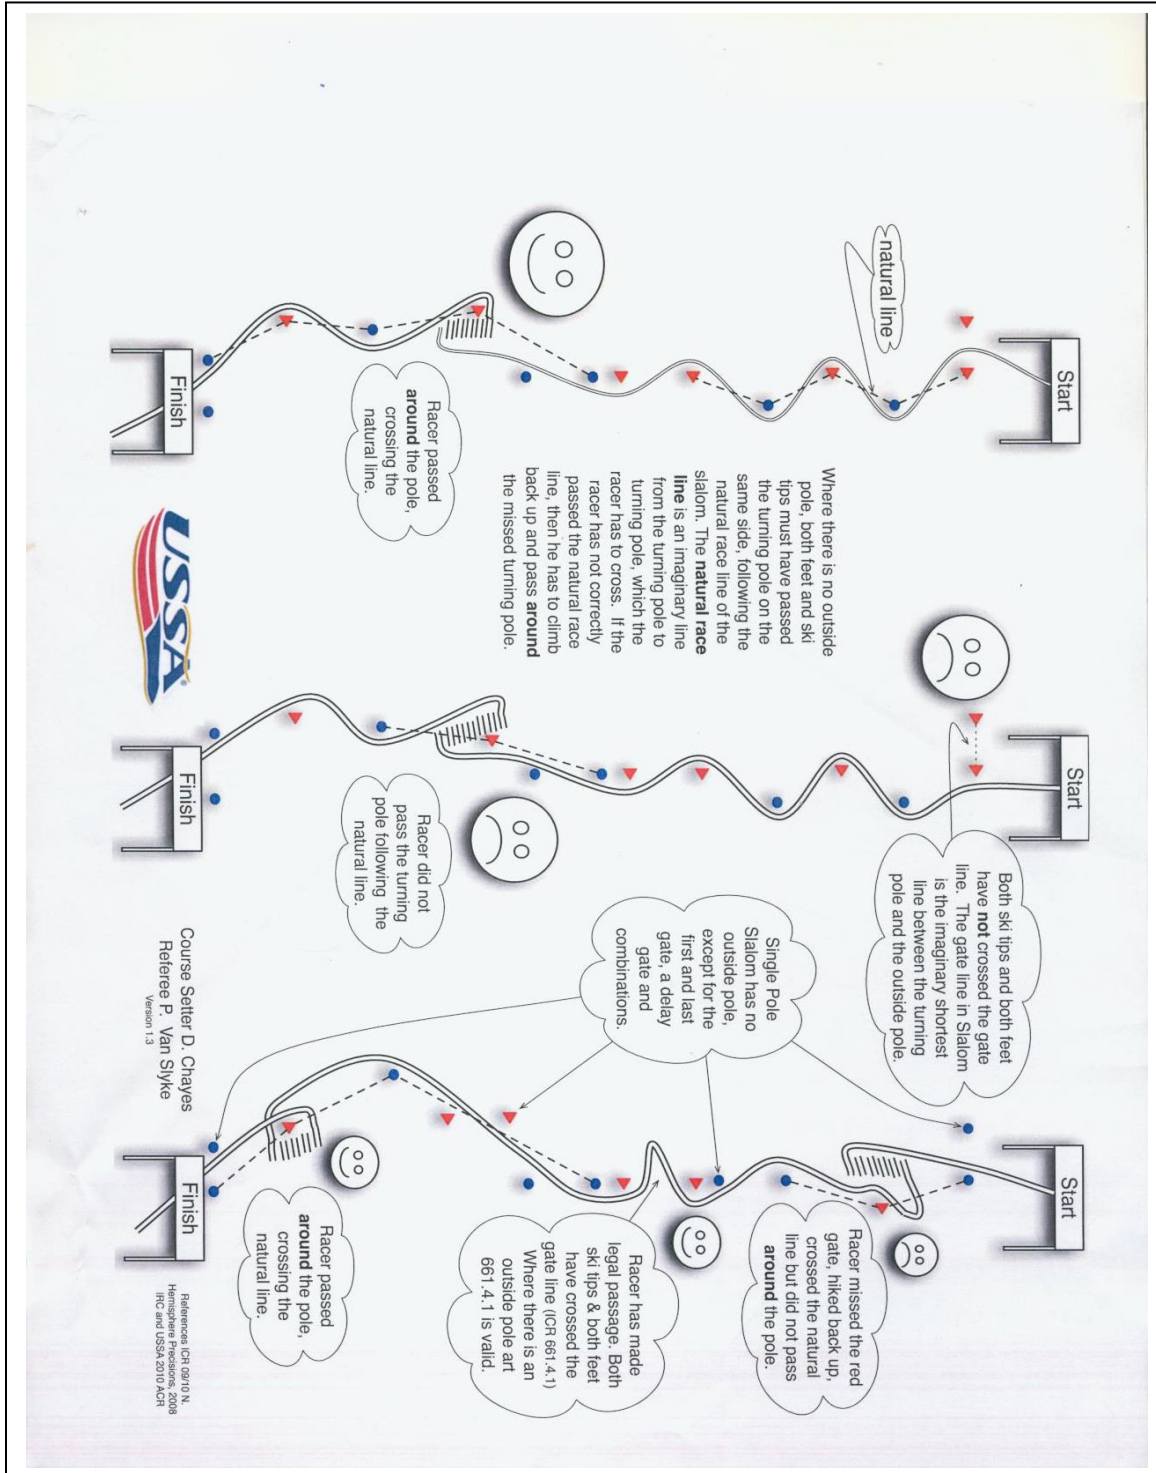 Start
natural line
Racer passed
around the pole,
crossing the
natural line.
Finish
Where there is no outside
pole, both feet and ski
tips must have passed
the turning pole on the
same side, following the
natural race line of the
slalom. The natural race
line is an imaginary line
from the turning pole to
turning pole, which the
racer has to cross. If the
racer has not correctly
passed the natural race
line, then he has to climb
back up and pass around
the missed turning pole.
USSA®
Start
Both ski tips and both feet
have not crossed the gate
line. The gate line in Slalom
is the imaginary shortest
line between the turning
pole and the outside pole.
Racer did not
pass the turning
pole following the
natural line.
Finish
Single Pole
Slalom has no
outside pole,
except for the
first and last
gate, a delay
gate and
combinations.
Start
Racer missed the red
gate, hiked back up,
crossed the natural
line but did not pass
around the pole.
Racer has made
legal passage. Both
ski tips & both feet
have crossed the
gate line (ICR 661.4.1)
Where there is an
outside pole art
661.4.1 is valid.
Racer passed
around the pole,
crossing the
natural line.
Finish
Course Setter D. Chayes
Referee P. Van Slyke
Version 1.3
References ICR 09/10 N.
Hemisphere Precisions, 2008
IRC and USSA 2010 ACR